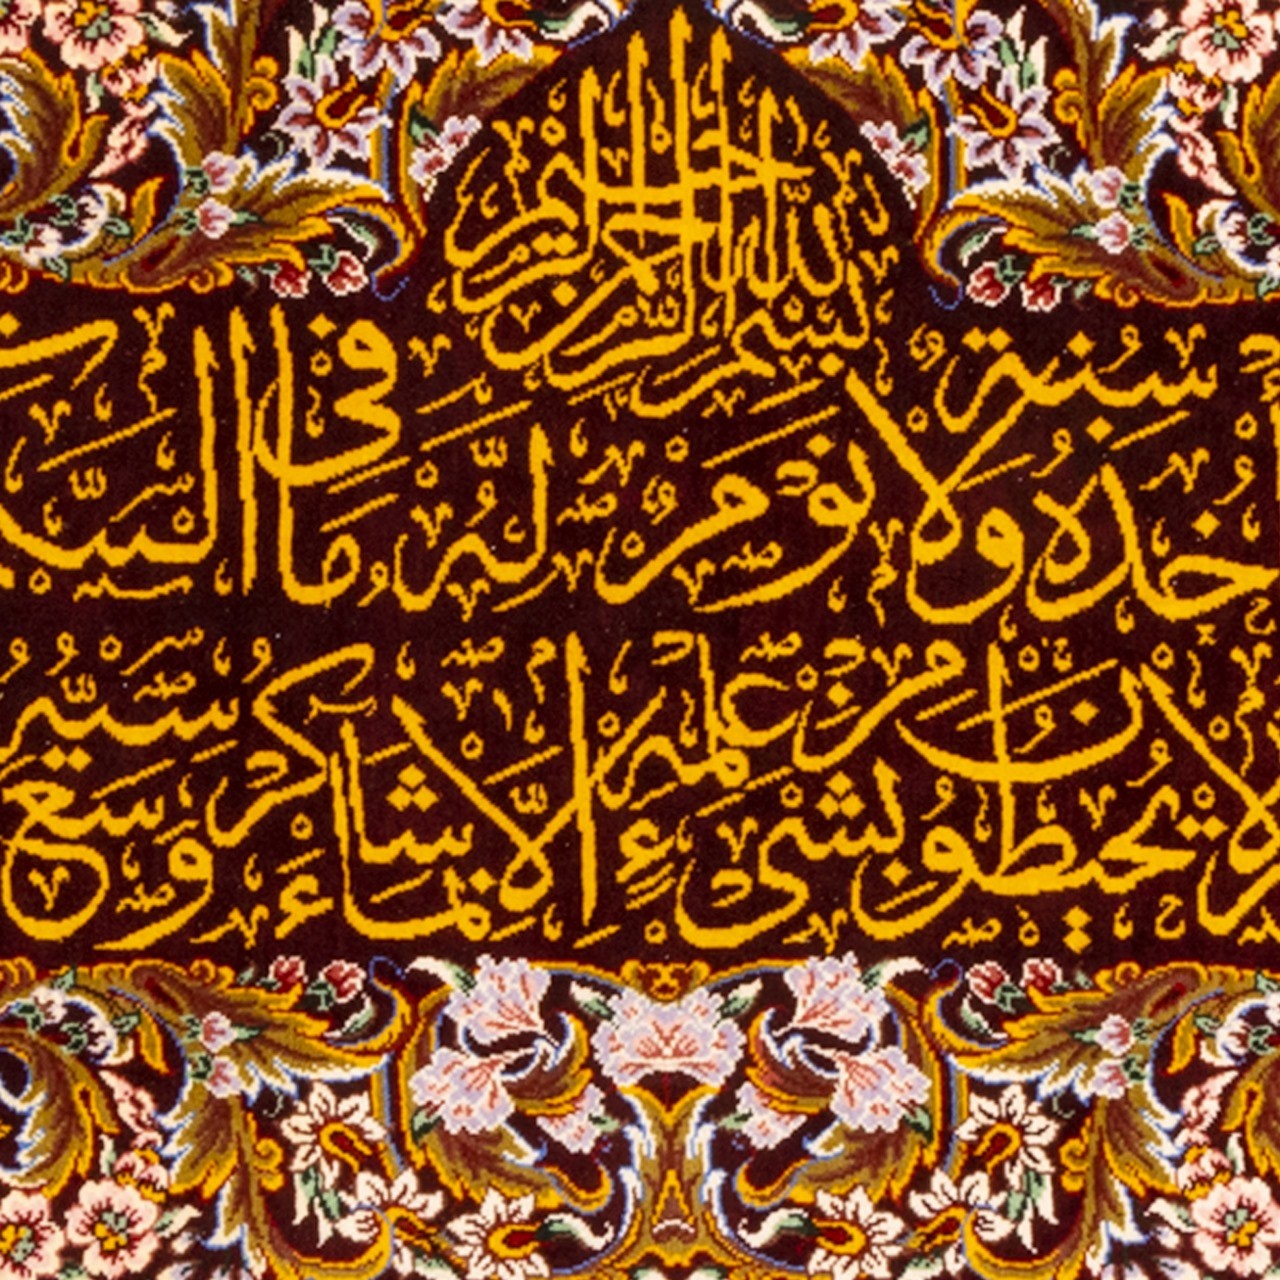 بسم الله الرحمن الرحيم
خذه سنة ولا نوم له ما فى السـ
لا يحيطون بشىء من علمه الا بما شاء وسع كرسيه